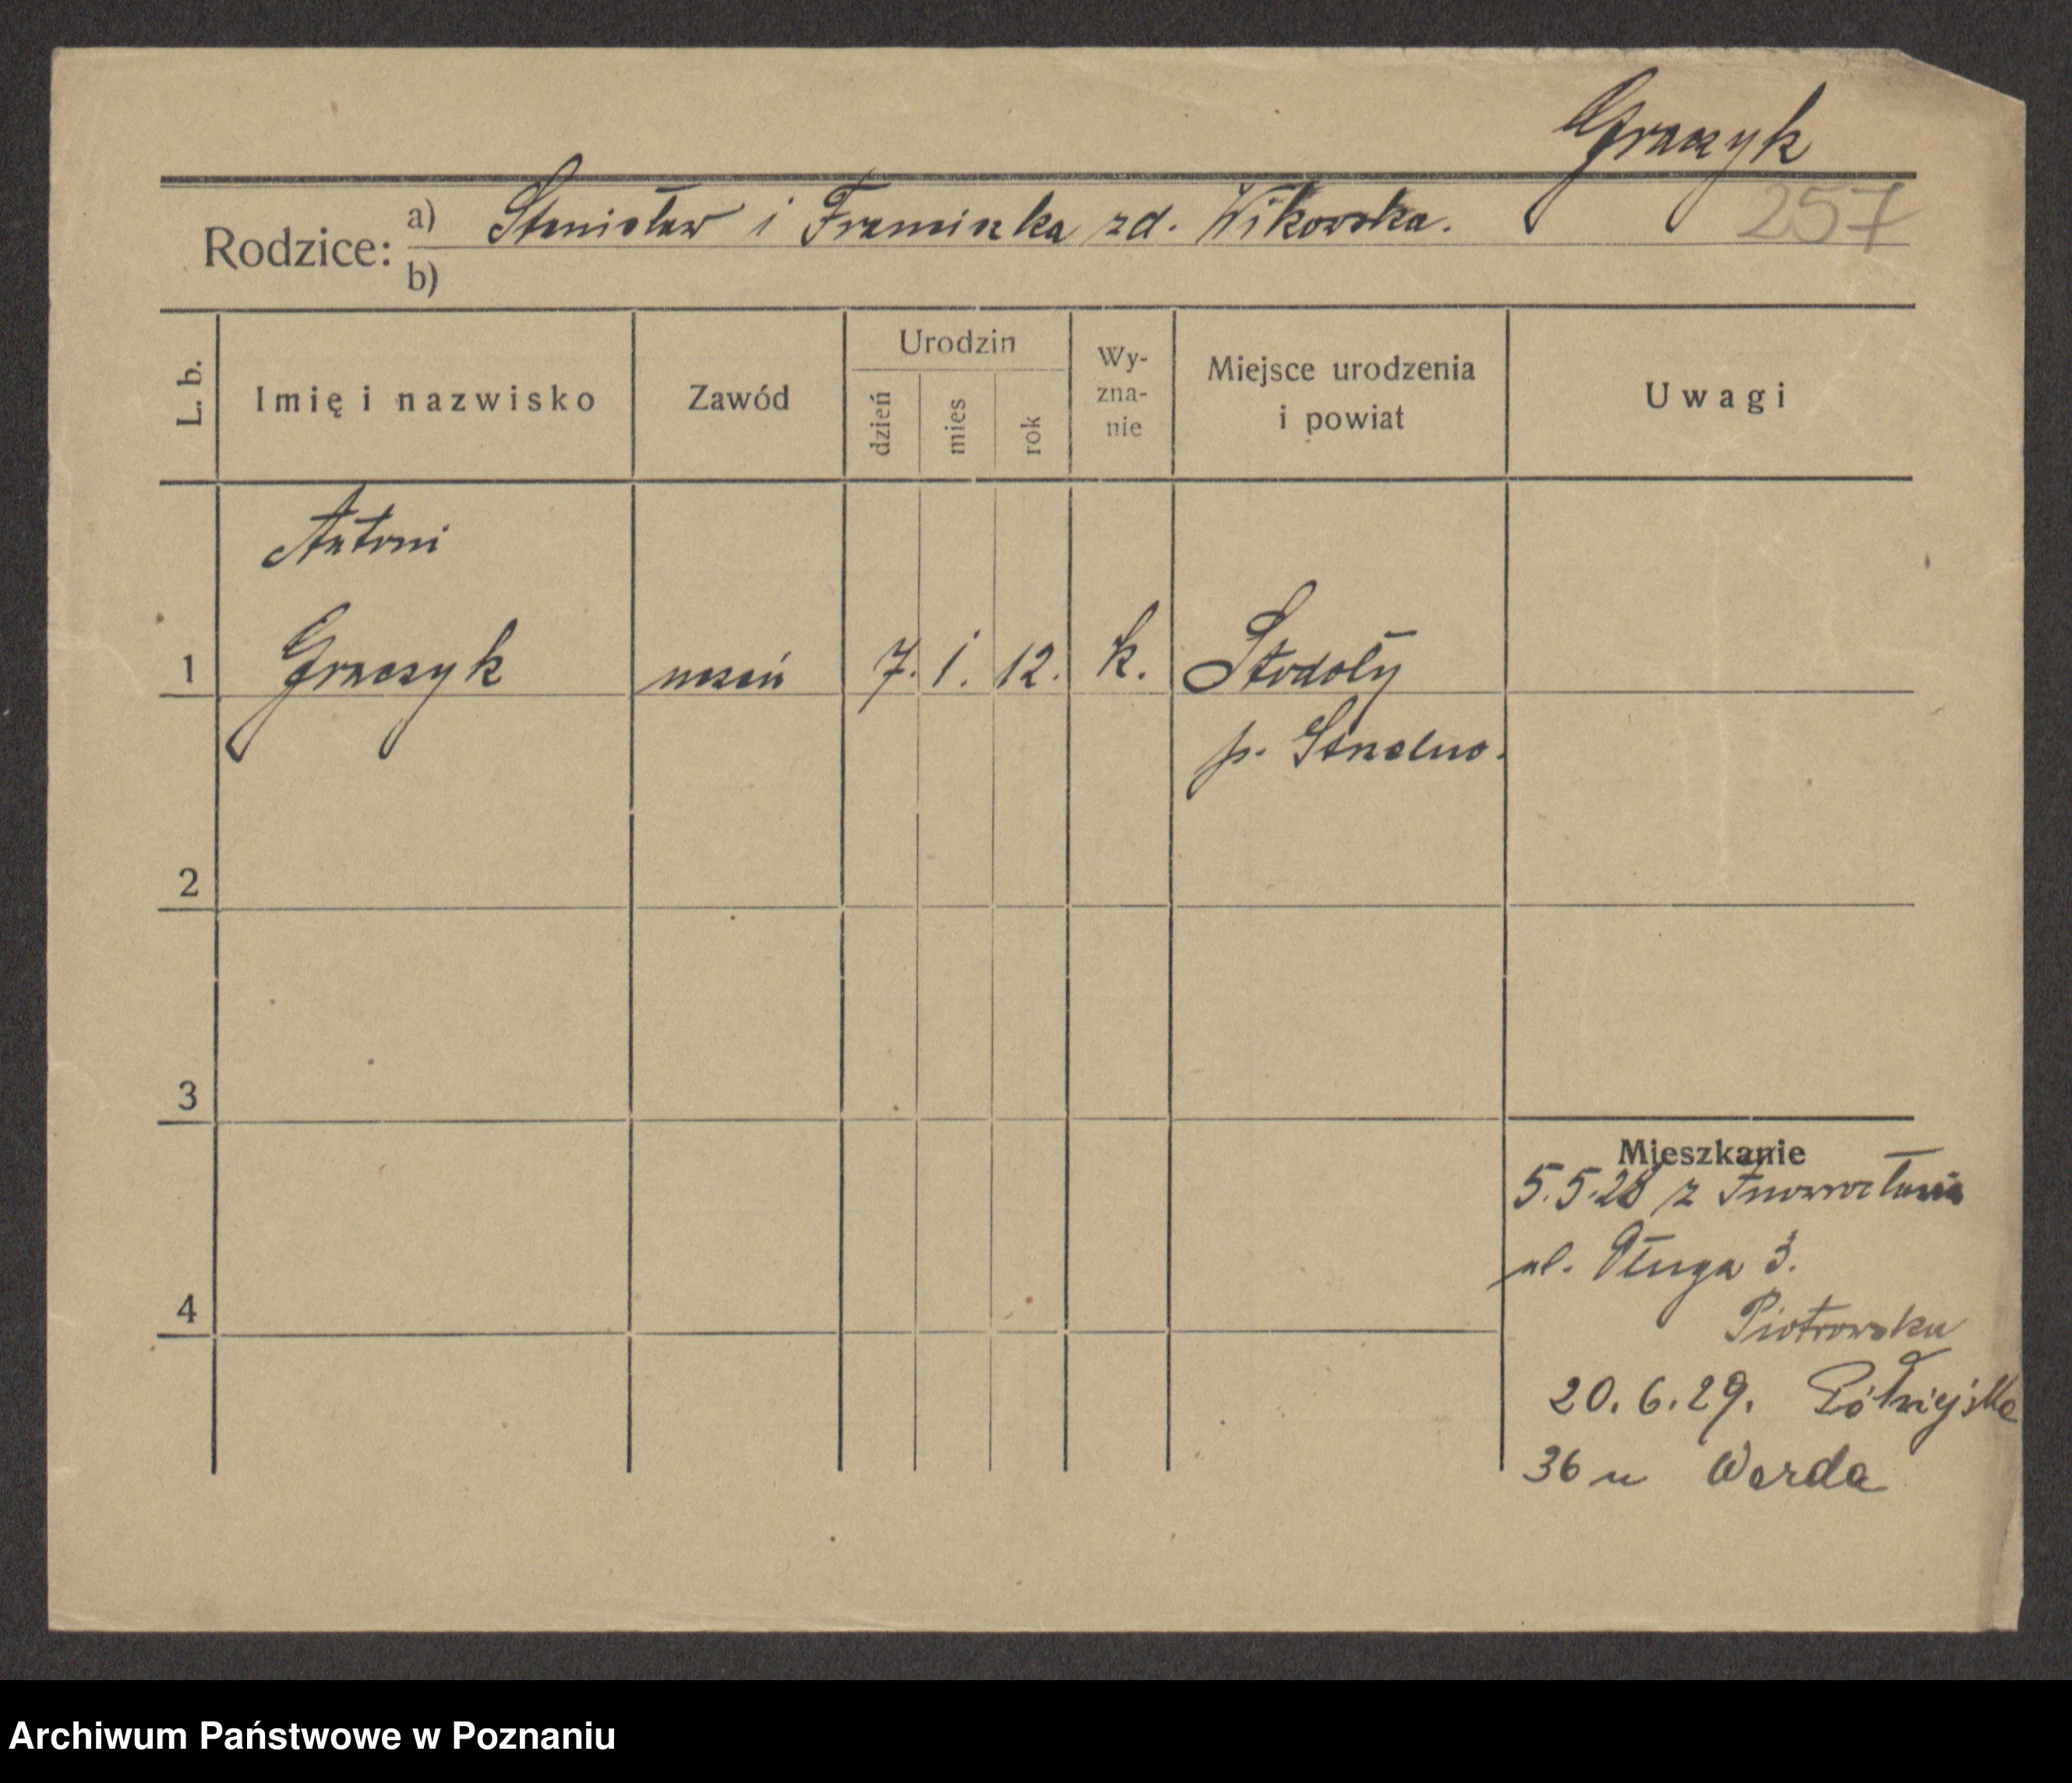 Graczyk
257
Rodzice: a) Stanisław i Franciszka zd. Wikowska.
b)
L. b.
Imię i nazwisko
Zawód
Urodzin
dzień
mies
rok
Wy-
zna-
nie
Miejsce urodzenia
i powiat
Uwagi
Antoni
1 Graczyk uczeń 7. 1. 12. k. Stodoły
p. Strzelno.
2
3
4
Mieszkanie
5.5.28 z Inowrocławia
ul. Długa 3.
Piotrowska
20.6.29. Półwiejska
36 u Warda
Archiwum Państwowe w Poznaniu